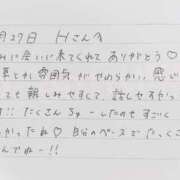 月27日 Hさんへ
に会いに来てくれて ありがとう♡
雰囲気がやわらかい感じ
ても親しみやすくて、話しやすかっ
!! たくさん ちゅーしたのもすごく
かったね♡ 自分のペースで たっくさ
んでねー!!